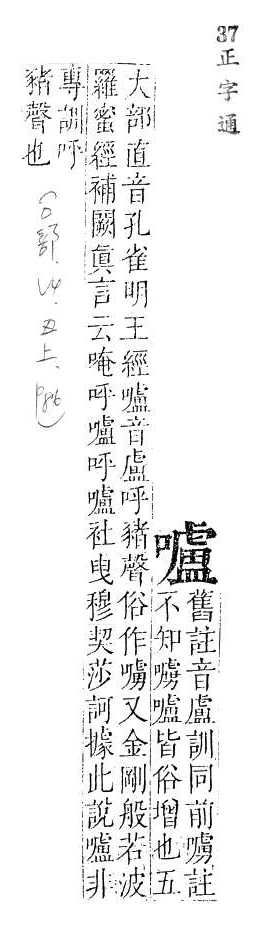 37
正字通
嚧
舊註音盧訓同前註
不知嚧皆俗增也五
大部直音孔雀明王經嚧音盧呼豬聲俗作又金剛般若波
羅蜜經補闕眞言云唵呼嚧呼嚧社曳穆契莎訶據此說嚧非
專訓呼
豬聲也
(口部. 丑上. P86)